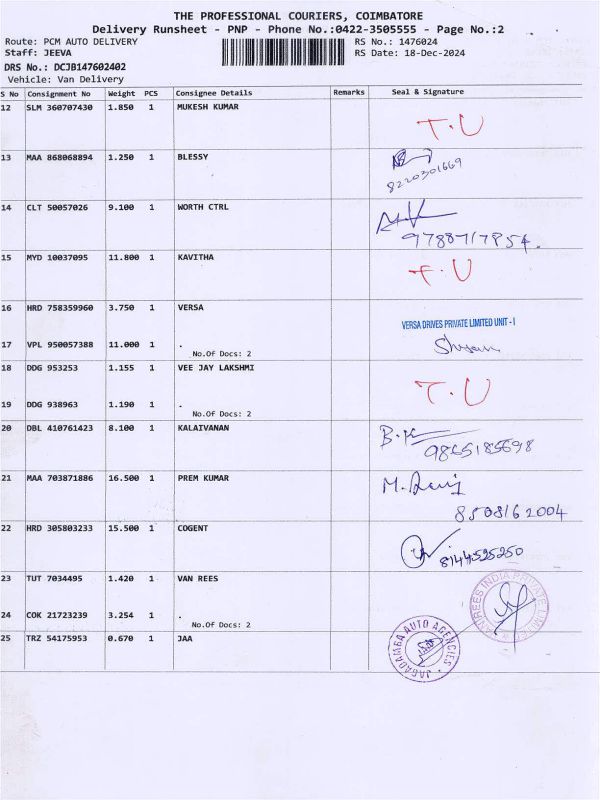 THE PROFESSIONAL COURIERS, COIMBATORE
Delivery Runsheet - PNP - Phone No.:0422-3505555 - Page No.:2
Route: PCM AUTO DELIVERY RS No.: 1476024
Staff: JEEVA RS Date: 18-Dec-2024
DRS No.: DCJB147602402
Vehicle: Van Delivery
S No Consignment No Weight PCS Consignee Details Remarks Seal & Signature
12 SLM 360707430 1.850 1 MUKESH KUMAR
T.U
13 MAA 868068894 1.250 1 BLESSY
8220301669
14 CLT 50057026 9.100 1 WORTH CTRL
9788717854.
15 MYD 10037095 11.800 1 KAVITHA
T.U
16 HRD 758359960 3.750 1 VERSA
VERSA DRIVES PRIVATE LIMITED UNIT - I
17 VPL 950057388 11.000 1 .
No.Of Docs: 2
18 DDG 953253 1.155 1 VEE JAY LAKSHMI
T.U
19 DDG 938963 1.190 1 .
No.Of Docs: 2
20 DBL 410761423 8.100 1 KALAIVANAN
B.K
9865185698
21 MAA 703871886 16.500 1 PREM KUMAR
M.
8508162004
22 HRD 305803233 15.500 1 COGENT
8144525250
23 TUT 7034495 1.420 1 VAN REES
VAN REES INDIA PRIVATE LIMITED
24 COK 21723239 3.254 1 .
No.Of Docs: 2
25 TRZ 54175953 0.670 1 JAA
JAGADAMBA AUTO AGENCIES